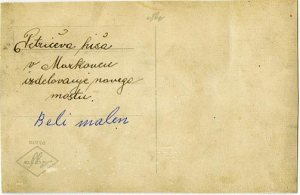 Petričeva hiša
v Markovcu
izdelovanje novega
mostu.
Beli malen